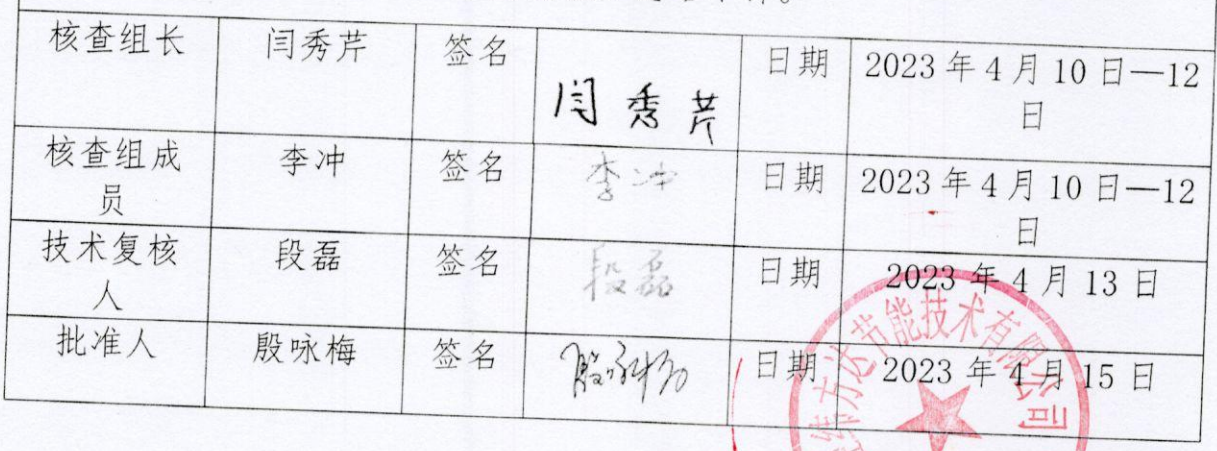 核查组长 闫秀芹 签名 闫秀芹 日期 2023年4月10日—12
日
核查组成 李冲 签名 李冲 日期 2023年4月10日—12
员 日
技术复核 段磊 签名 段磊 日期 2023年4月13日
人
批准人 殷咏梅 签名 殷咏梅 日期 2023年4月15日
方达节能技术有限公司